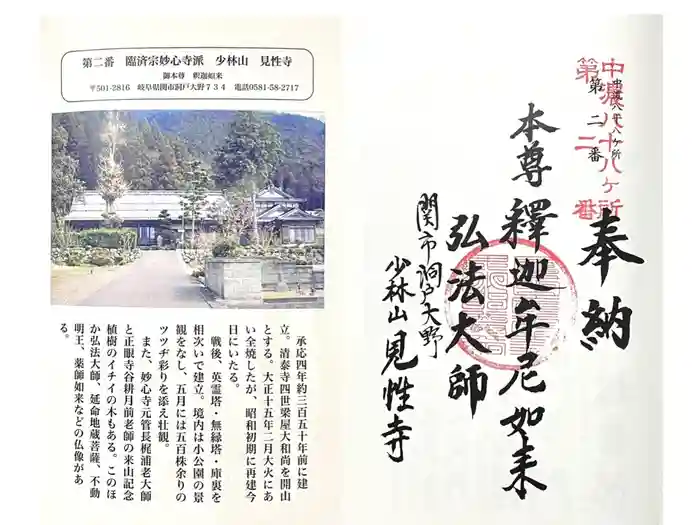 第二番　臨済宗妙心寺派　少林山　見性寺
御本尊　釈迦如来
〒501-2816　岐阜県関市洞戸大野７３４　電話0581-58-2717
承応四年約三百五十年前に建
立。清泰寺四世梁屋大和尚を開山
とする。大正十五年二月大火にあ
い全焼したが、昭和初期に再建今
日にいたる。
戦後、英霊塔・無縁塔・庫裏を
相次いで建立。境内は小公園の景
観をなし、五月には五百株余りの
ツツヂ彩りを添え壮観。
また、妙心寺元管長梶浦老大師
と正眼寺谷耕月前老師の来山記念
植樹のイチイの木もある。このほ
か弘法大師、延命地蔵菩薩、不動
明王、薬師如来などの仏像があ
る。
中濃八十八ヶ所
第二番
中濃八十八ヶ所
第二番
奉納
本尊釋迦牟尼如来
弘法大師
関市洞戸大野
少林山見性寺